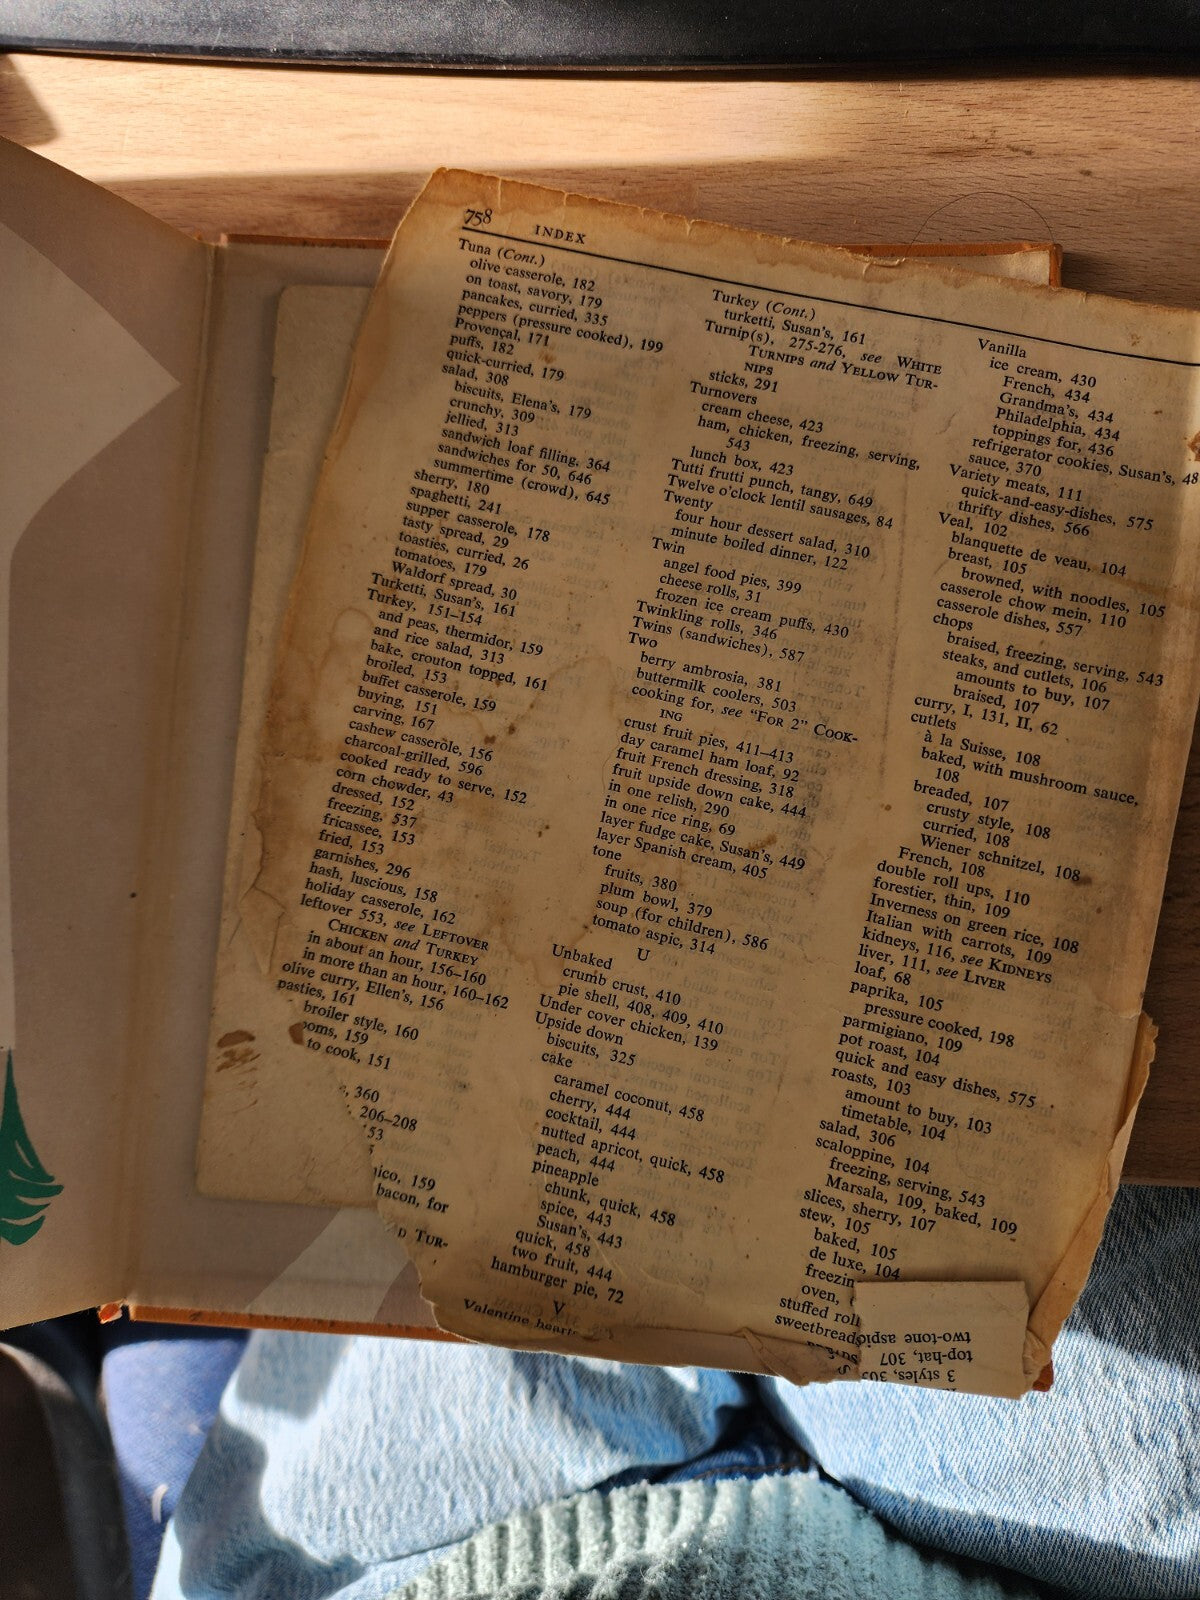 758 INDEX
Tuna (Cont.)
olive casserole, 182
on toast, savory, 179
pancakes, curried, 335
peppers (pressure cooked), 199
Provençal, 171
puffs, 182
quick-curried, 179
salad, 308
biscuits, Elena's, 179
crunchy, 309
jellied, 313
sandwich loaf filling, 364
sandwiches for 50, 646
summertime (crowd), 645
sherry, 180
spaghetti, 241
supper casserole, 178
tasty spread, 29
toasties, curried, 26
tomatoes, 179
Waldorf spread, 30
Turketti, Susan's, 161
Turkey, 151–154
and peas, thermidor, 159
and rice salad, 313
bake, crouton topped, 161
broiled, 153
buffet casserole, 159
buying, 151
carving, 167
cashew casserole, 156
charcoal-grilled, 596
cooked ready to serve, 152
corn chowder, 43
dressed, 152
freezing, 537
fricassee, 153
fried, 153
garnishes, 296
hash, luscious, 158
holiday casserole, 162
leftover 553, see LEFTOVER
CHICKEN and TURKEY
in about an hour, 156–160
in more than an hour, 160–162
olive curry, Ellen's, 156
pasties, 161
broiler style, 160
ooms, 159
to cook, 151
, 360
, 206–208
53
ico, 159
bacon, for
D TUR-
Turkey (Cont.)
turketti, Susan's, 161
Turnip(s), 275-276, see WHITE
TURNIPS and YELLOW TUR-
NIPS
sticks, 291
Turnovers
cream cheese, 423
ham, chicken, freezing, serving,
543
lunch box, 423
Tutti frutti punch, tangy, 649
Twelve o'clock lentil sausages, 84
Twenty
four hour dessert salad, 310
minute boiled dinner, 122
Twin
angel food pies, 399
cheese rolls, 31
frozen ice cream puffs, 430
Twinkling rolls, 346
Twins (sandwiches), 587
Two
berry ambrosia, 381
buttermilk coolers, 503
cooking for, see "FOR 2" COOK-
ING
crust fruit pies, 411–413
day caramel ham loaf, 92
fruit French dressing, 318
fruit upside down cake, 444
in one relish, 290
in one rice ring, 69
layer fudge cake, Susan's, 449
layer Spanish cream, 405
tone
fruits, 380
plum bowl, 379
soup (for children), 586
tomato aspic, 314
U
Unbaked
crumb crust, 410
pie shell, 408, 409, 410
Under cover chicken, 139
Upside down
biscuits, 325
cake
caramel coconut, 458
cherry, 444
cocktail, 444
nutted apricot, quick, 458
peach, 444
pineapple
chunk, quick, 458
spice, 443
Susan's, 443
quick, 458
two fruit, 444
hamburger pie, 72
V
Valentine hearts
Vanilla
ice cream, 430
French, 434
Grandma's, 434
Philadelphia, 434
toppings for, 436
refrigerator cookies, Susan's, 48
sauce, 370
Variety meats, 111
quick-and-easy-dishes, 575
thrifty dishes, 566
Veal, 102
blanquette de veau, 104
breast, 105
browned, with noodles, 105
casserole chow mein, 110
casserole dishes, 557
chops
braised, freezing, serving, 543
steaks, and cutlets, 106
amounts to buy, 107
braised, 107
curry, I, 131, II, 62
cutlets
à la Suisse, 108
baked, with mushroom sauce,
108
breaded, 107
crusty style, 108
curried, 108
Wiener schnitzel, 108
French, 108
double roll ups, 110
forestier, thin, 109
Inverness on green rice, 108
Italian with carrots, 109
kidneys, 116, see KIDNEYS
liver, 111, see LIVER
loaf, 68
paprika, 105
pressure cooked, 198
parmigiano, 109
pot roast, 104
quick and easy dishes, 575
roasts, 103
amount to buy, 103
timetable, 104
salad, 306
scaloppine, 104
freezing, serving, 543
Marsala, 109, baked, 109
slices, sherry, 107
stew, 105
baked, 105
de luxe, 104
freezin
oven,
stuffed roll
sweetbreads
two-tone aspic
top-hat, 307
3 styles, 305